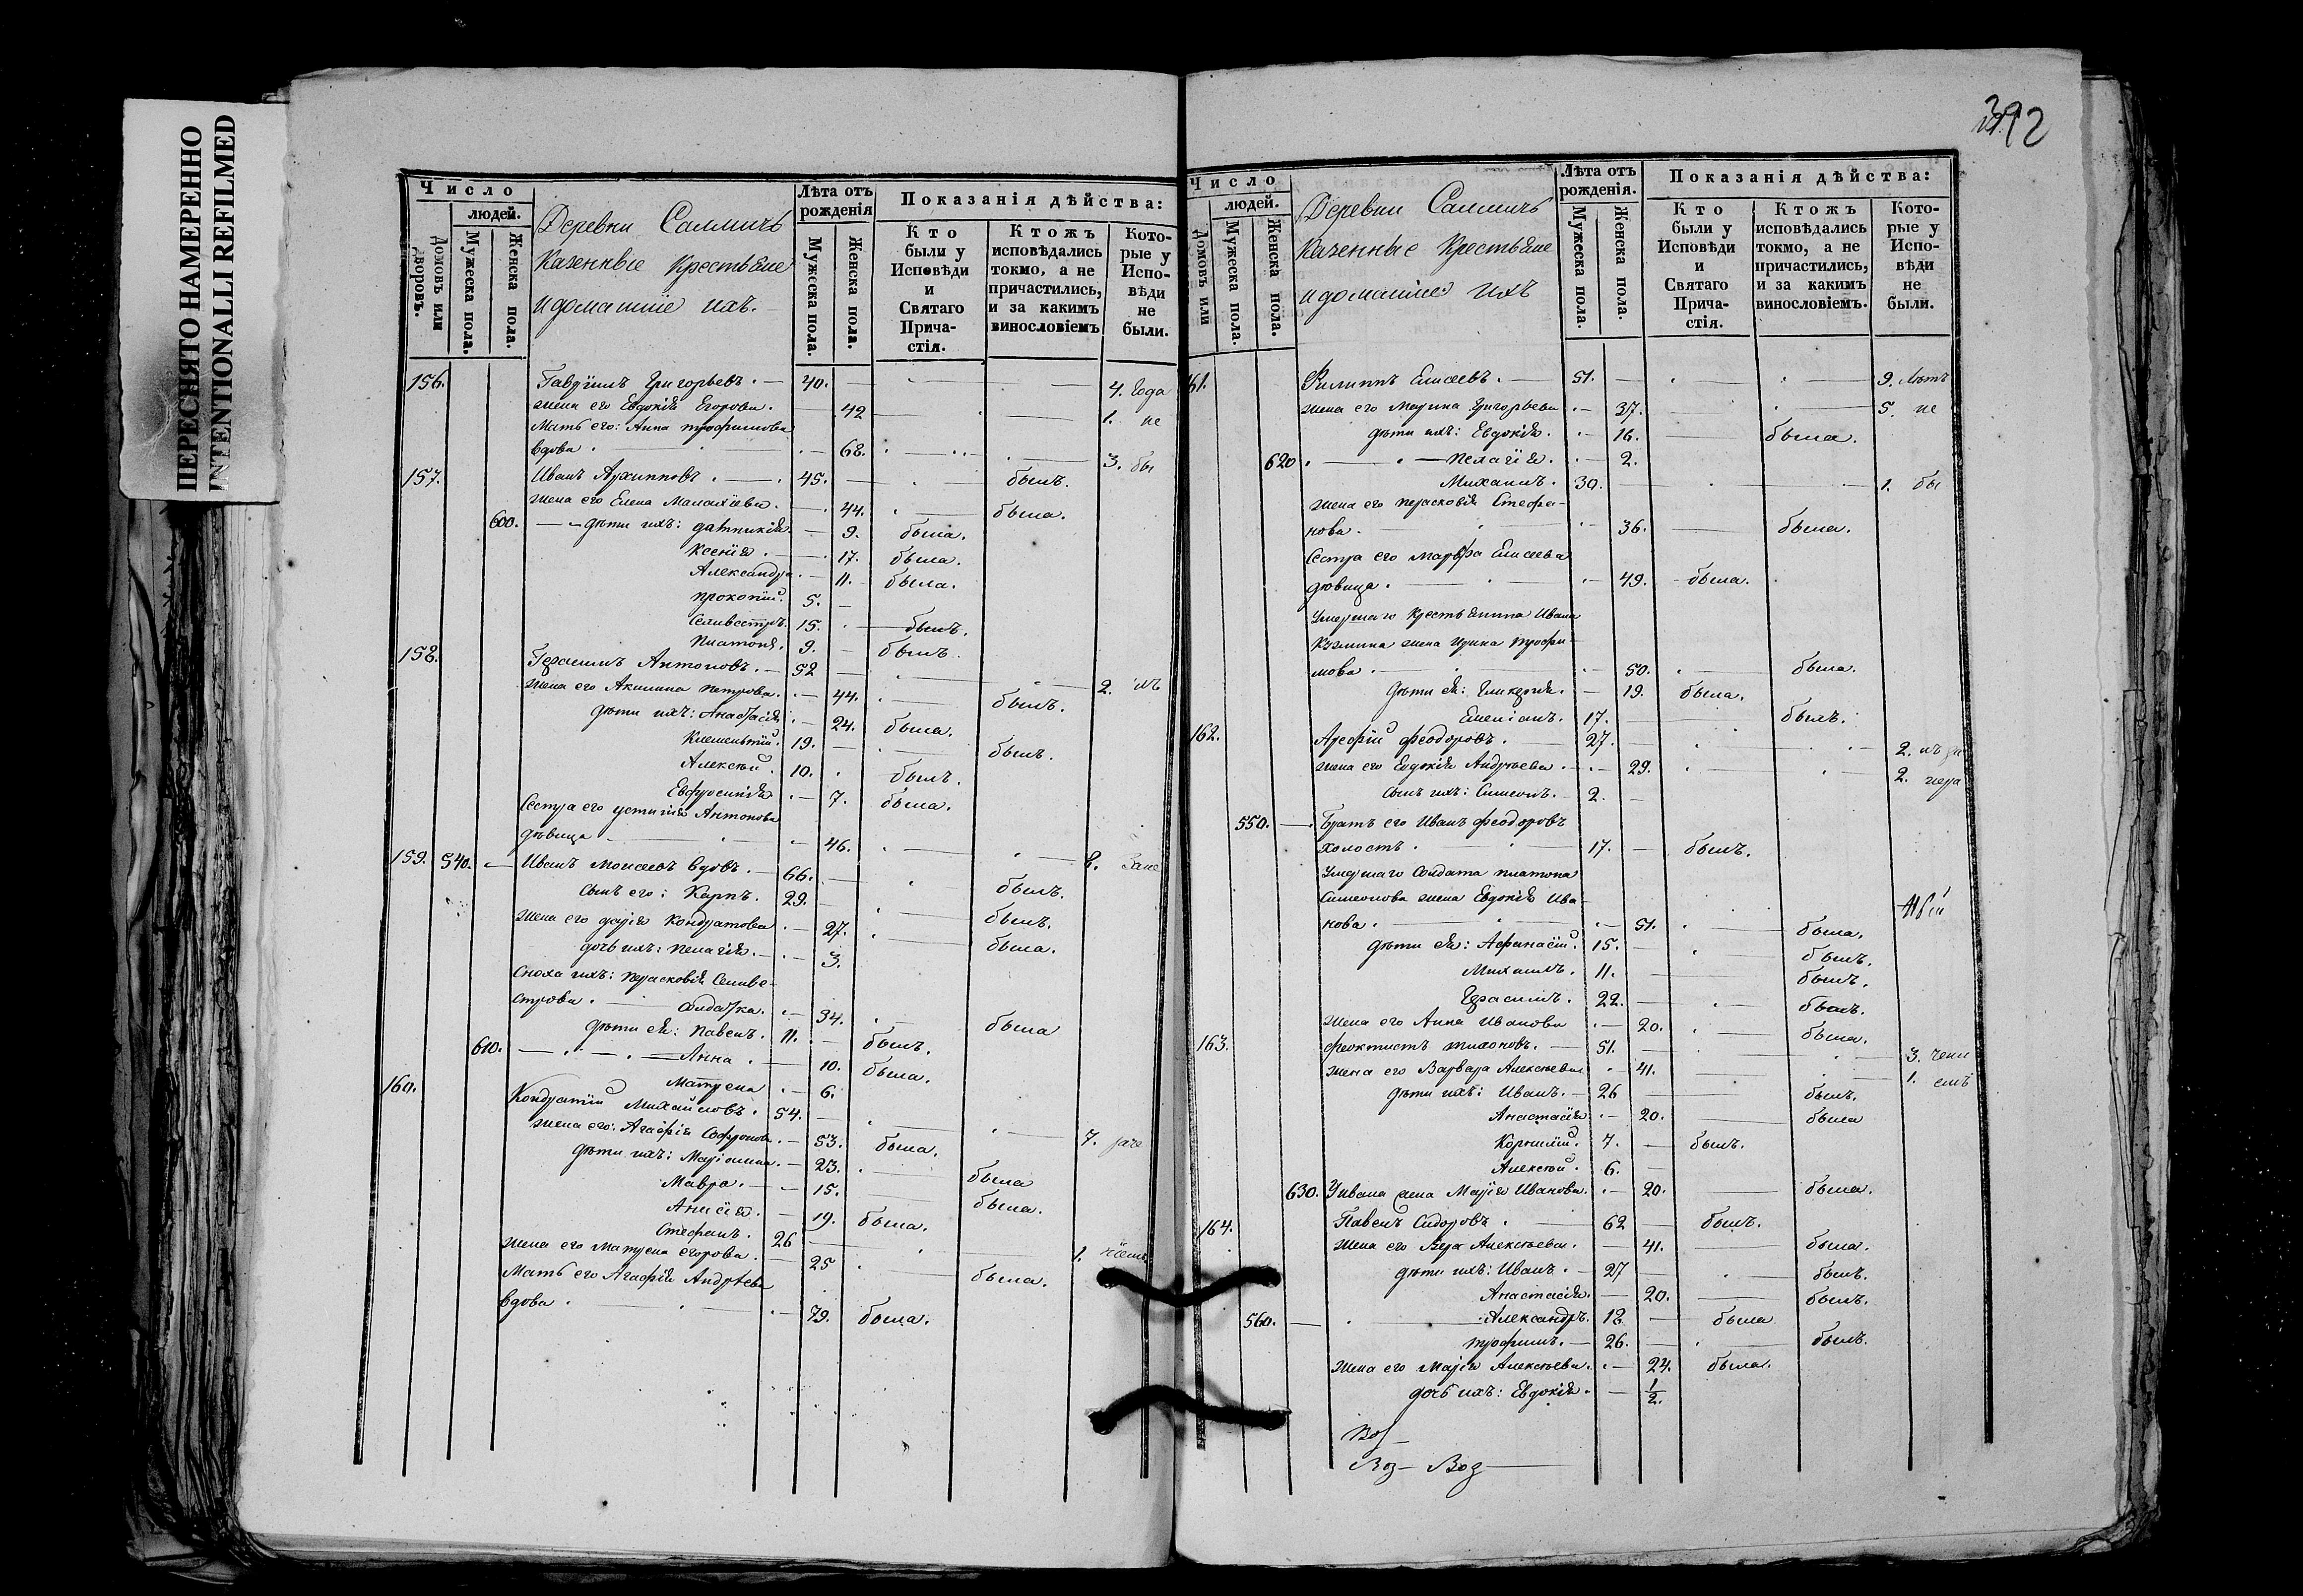 ПЕРЕСНЯТО НАМЕРЕННО
INTENTIONALLI REFILMED
392
Число
людей.
Домовъ или дворовъ.
Мужеска пола.
Женска пола.
Деревни
Казенные Крестьяне
и домашніе ихъ.
Лѣта отъ рожденія
Мужеска пола.
Женска пола.
Показанія дѣйства:
Кто были у Исповѣди и Святаго Прича- стія.
Ктожъ исповѣдались токмо, а не причастились, и за какимъ винословіемъ
Кото- рые у Испо- вѣди не были.
156. Гавріилъ Григорьевъ. 40. 4. года
жена его Евдокія Егорова. 42 1. не
Мать его: Анна Трофимова
вдова 68. 3. бы
157. Иванъ Архиповъ. 45. былъ.
жена его Елена Малахіева. 44. была.
600. дѣти ихъ: 9. была.
Ксенія. 17. была.
Александра. 11. была.
Прокопій. 5.
Селивестръ. 15. былъ.
Платонъ. 9. былъ.
158. Герасимъ Антоновъ. 52 2.
жена его Акилина Петрова. 44. былъ.
дѣти ихъ: Анастасія 24. была.
Климентій. 19. былъ.
Алексѣй. 10. былъ.
Евфросинія 7. была.
Сестра его Устинія Антонова
дѣвица 46. 8.
159. 540. Иванъ Моисеевъ вдовъ. 66. былъ.
сынъ его: Карпъ. 29. былъ.
жена его Дарія Кондратова 27. была.
дочь ихъ: Пелагія. 3.
Сноха ихъ: Парасковія Селиве-
строва. солдатка. 34. была
дѣти ея: Павелъ. 11. былъ.
610. Анна. 10. была.
Матрена 6.
160. Кондратій Михайловъ. 54. 7.
жена его: Агафія Софронова. 53. была.
дѣти ихъ: Маріамна. 23. была
Мавра. 15. была.
Анисія. 19. была.
Стефанъ. 26 1.
жена его Матрена Егорова. 25 была.
Мать его Агафія Андрѣева
вдова. 79. была.
Число
людей.
Домовъ или
Мужеска пола.
Женска пола.
Деревни
Казенные Крестьяне
и домашніе ихъ
Лѣта отъ рожденія.
Мужеска пола.
Женска пола.
Показанія дѣйства:
Кто были у Исповѣди и Святаго Прича- стія.
Ктожъ исповѣдались токмо, а не причастились, и за какимъ винословіемъ.
Кото- рые у Испо- вѣди не были.
61. Филиппъ Елисеевъ. 51. 9. лѣтъ
жена его Марина Григорьева 37. 5. не
дѣти ихъ: Евдокія. 16. была.
620 Пелагія. 2.
Михаилъ. 30. 1. бы
жена его Парасковія Стефа-
нова. 36. была.
Сестра его Марфа Елисеева
дѣвица. 49. была.
Умершаго крестьянина Ивана
Кузмина жена Ирина Трофи-
мова. 50. была.
дѣти ея: Гликерія. 19. была.
Емеліанъ. 17. былъ.
162. Арефій Феодоровъ. 27. 2.
жена его Евдокія Андрѣева. 29. 2. нера
сынъ ихъ: Симеонъ. 2.
550. Братъ его Иванъ Феодоровъ
холостъ. 17. былъ.
Умершаго солдата Платона
Симеонова жена Евдокія Ива-
нова. 51. была.
дѣти ея: Афанасій. 15. былъ.
Михаилъ. 11. былъ.
Герасимъ. 22. былъ.
жена его Анна Иванова 20. была.
163. Феоктистъ Тихоновъ. 51. 3.
жена его Варвара Алексѣева 41. 1.
дѣти ихъ: Иванъ. 26 былъ.
Анастасія 20. была
Корнилій. 7. былъ.
Алексѣй. 6.
630. У Ивана жена Марія Иванова. 20. была.
164. Павелъ Сидоровъ. 62 былъ.
жена его Вера Алексѣева. 41. была.
дѣти ихъ: Иванъ. 27 былъ.
Анастасія. 20. былъ.
560. Александръ. 12 была
Трофимъ. 26. былъ.
жена его Марія Алексѣева. 24. была.
дочь ихъ: Евдокія. 1/2.
Воз Воз